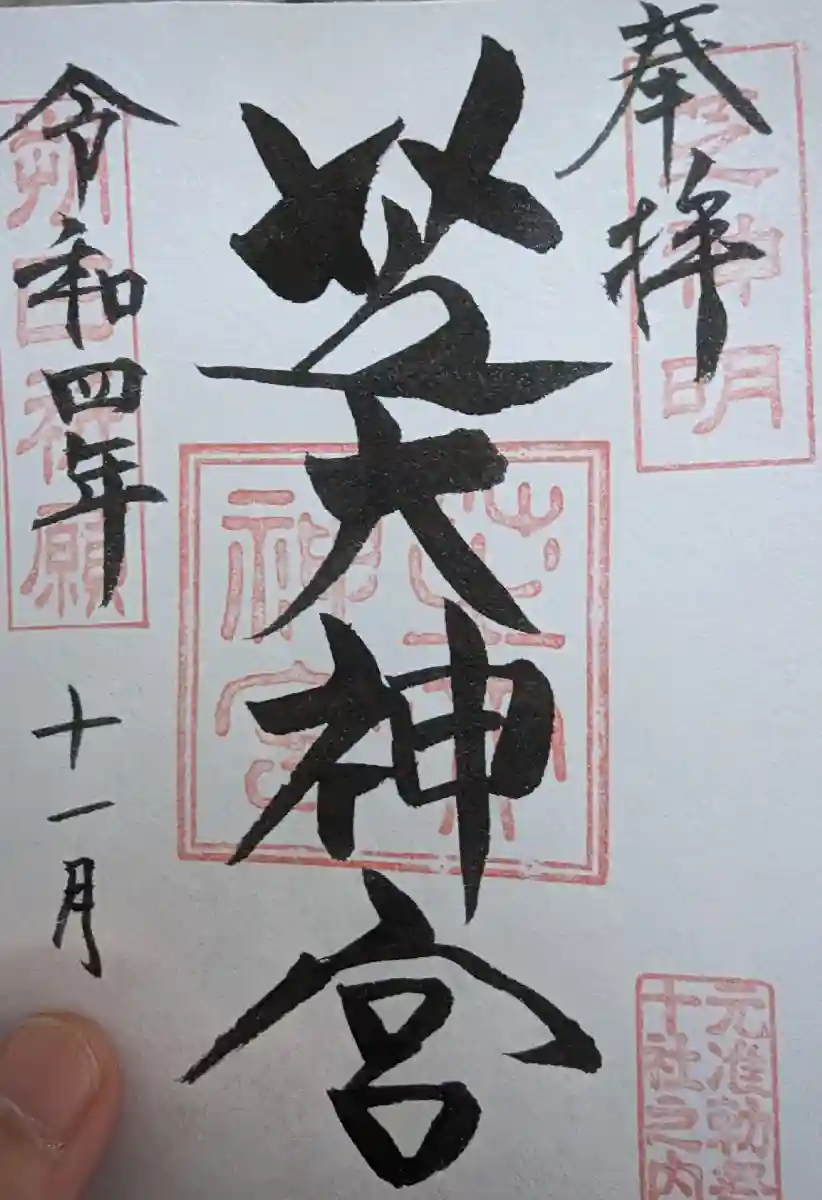 奉拝
芝神明
芝大神宮
芝大神宮
元准勅祭
十社之内
令和四年
十一月
朔日祈願